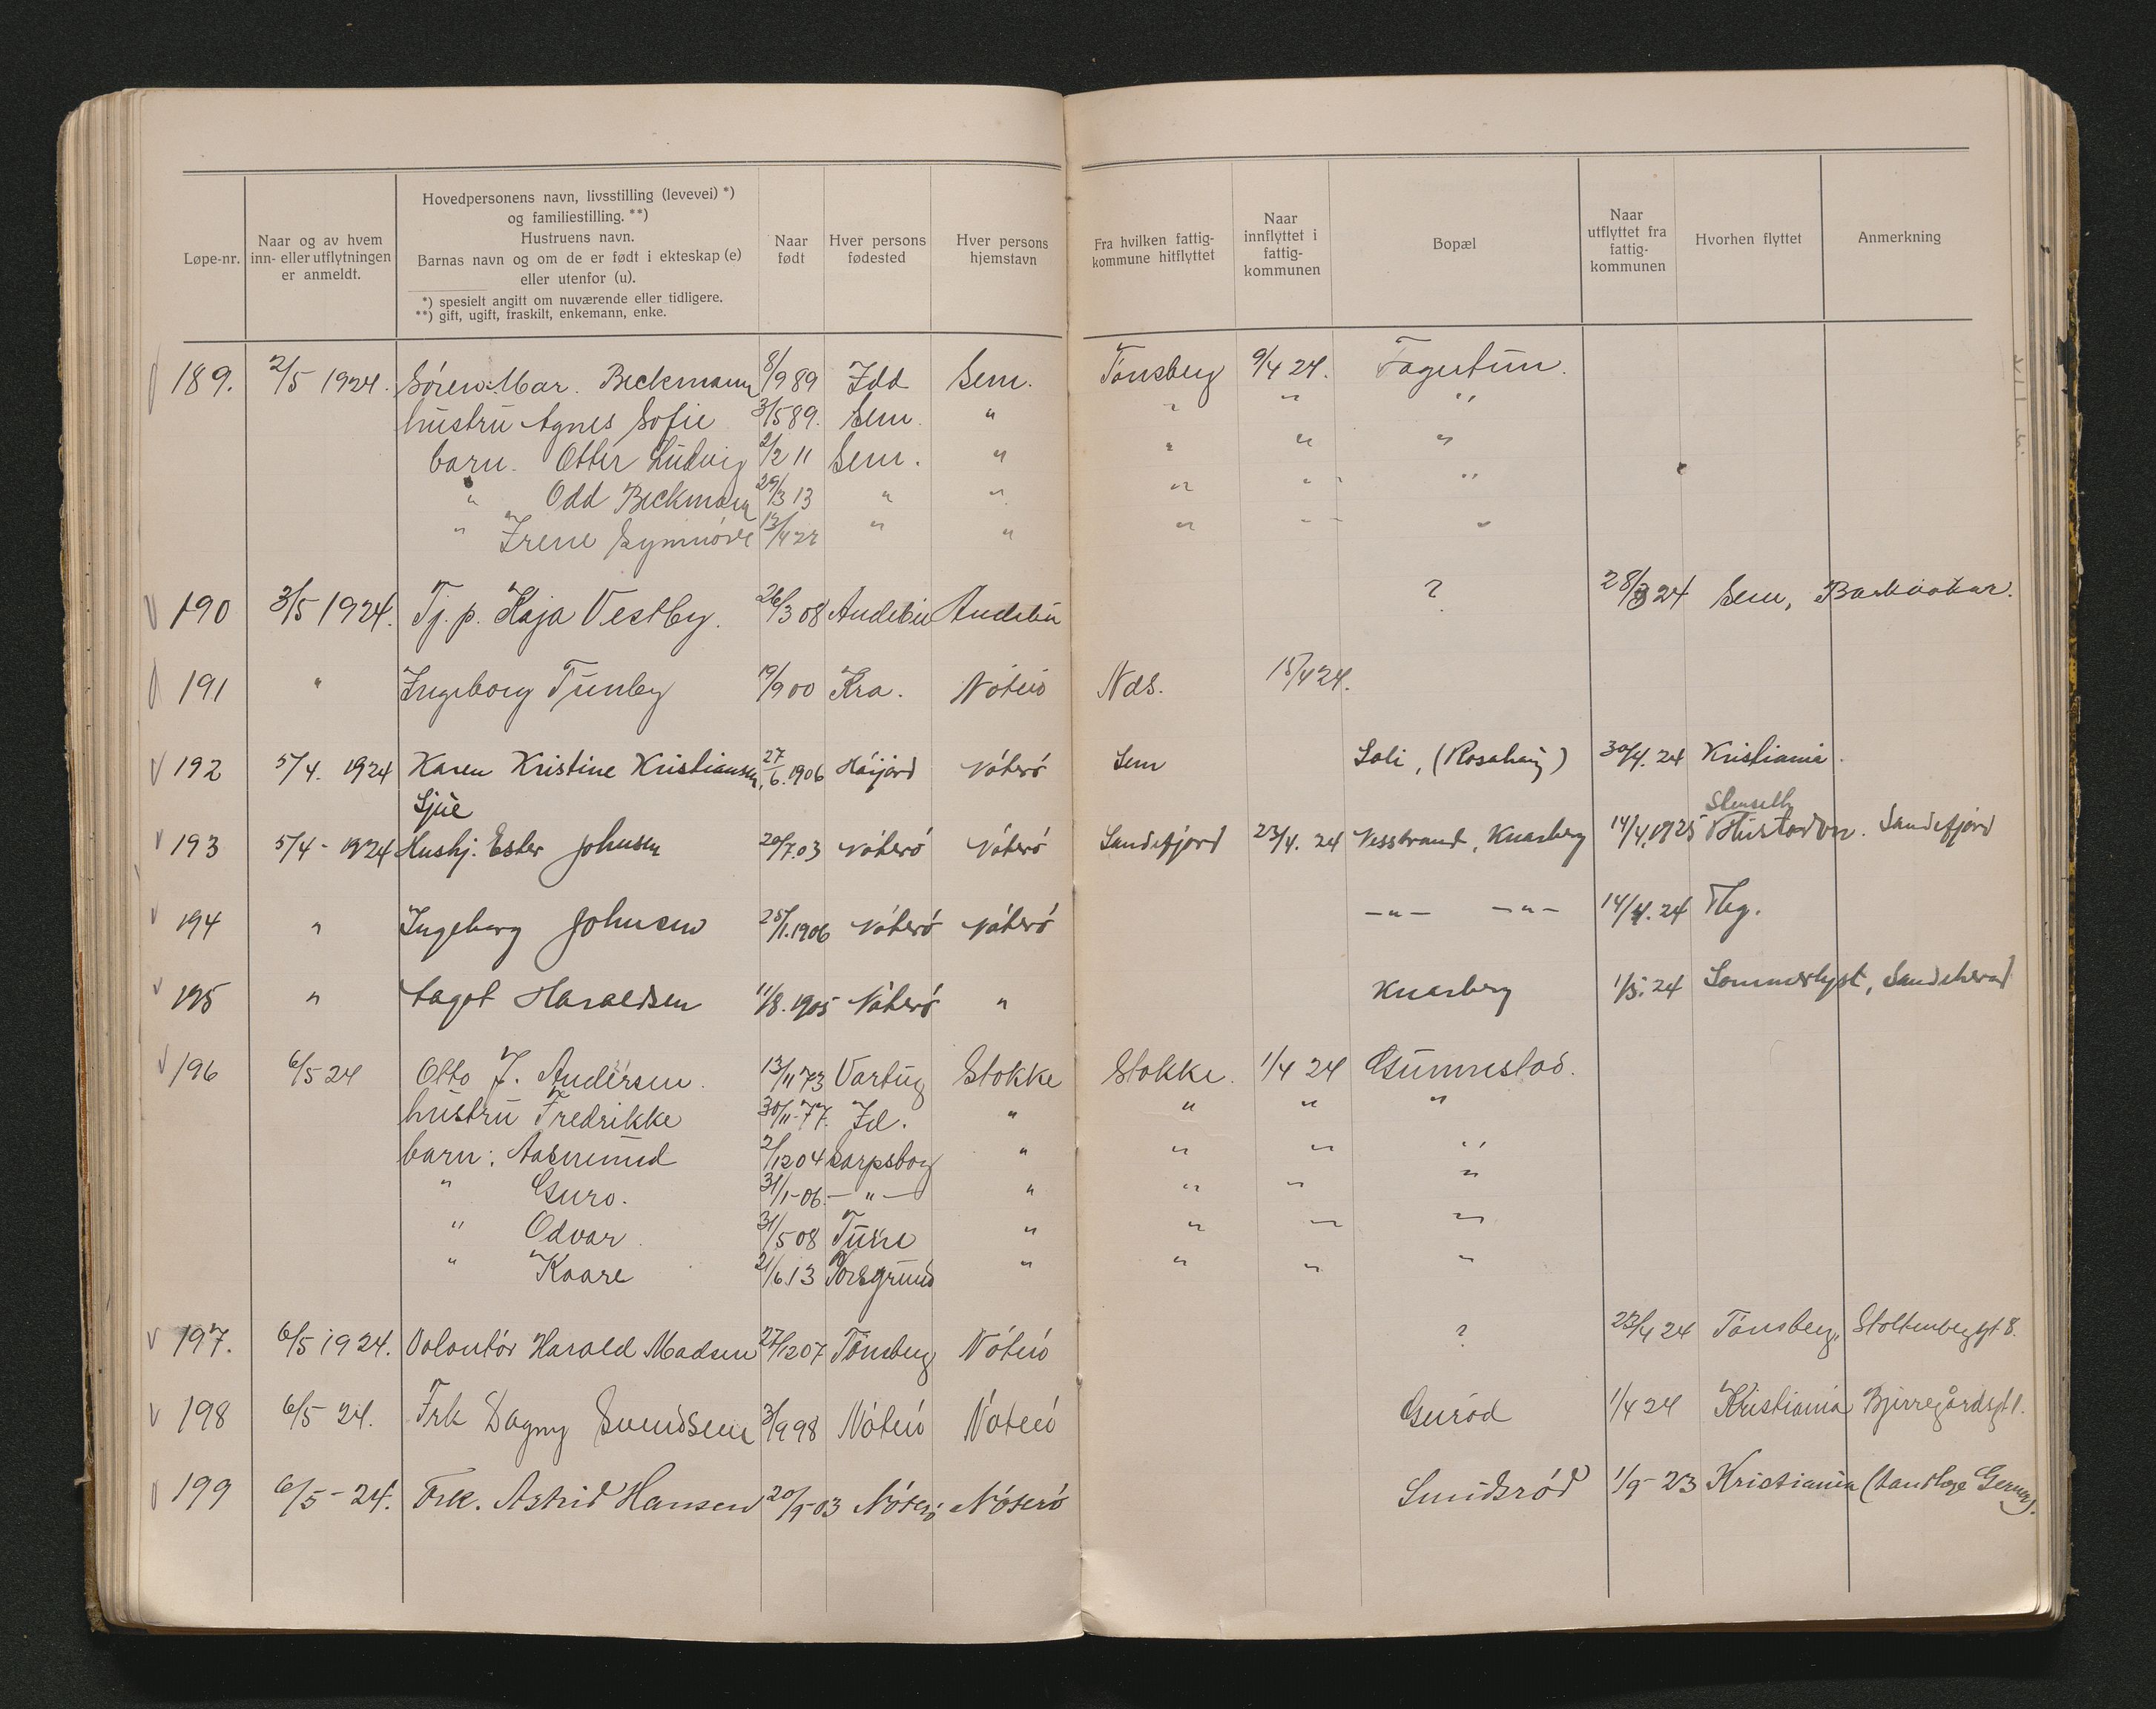 Løpe-nr.
Naar og av hvem
inn- eller utflytningen
er anmeldt.
Hovedpersonens navn, livsstilling (levevei) *)
og familiestilling. **)
Hustruens navn.
Barnas navn og om de er født i ekteskap (e)
eller utenfor (u).
*) spesielt angitt om nuværende eller tidligere.
**) gift, ugift, fraskilt, enkemann, enke.
Naar
født
Hver persons
fødested
Hver persons
hjemstavn
Fra hvilken fattig-
kommune hitflyttet
Naar
innflyttet i
fattig-
kommunen
Bopæl
Naar
utflyttet fra
fattig-
kommunen
Hvorhen flyttet
Anmerkning
189. 2/5 1924. Søren Mar. Beckmann 8/9 89 Idd Sem. Tønsberg 9/4 24. Fagertun.
hustru Agnes Sofie 3/5 89. Sem " " " "
barn. Otter Ludvig 2/2 11 Sem. " " " "
" Odd Beckmann 29/3 13 " " " " "
" Irene Synnøve 12/4 22 " " " " "
190 3/5 1924. Tj. p. Kaja Vestby. 26/3 08 Andebu Andebu ? 28/3 24 Sem, Barkåker.
191 " Ingeborg Tunby 19/9 00 Kra. Nøterø Nds. 15/4 24.
192 5/4. 1924 Karen Kristine Kristiansen, 27/6. 1906 Høijord Nøterø Sem Soli, (Rosahaug) 30/4. 24 Kristiania.
Sjue
193 5/4 - 1924 Hushj. Ester Johnsen 20/7.03 Nøterø Nøterø Sandefjord 23/4. 24 Nesstrand, Knarberg 14/4.1925 Sandefjord
194 " Ingeborg Johnsen 25/1.1906 Nøterø Nøterø -"- -"- 14/4. 24 Tbg.
195 " Aagot Haraldsen 11/8. 1905 Nøterø " Knarberg 1/5. 24 Sommerlyst, Sandeherad
196 6/5 24 Otto J. Andersen. 13/11 73 Varteig Stokke Stokke. 1/4 24 Gunnestad.
hustru Fredrikke 30/11-77. Id. " " " "
barn: Aasmund 2/12 04 Sarpsborg " " " "
" Guro. 31/1-06 -"- " " " "
" Odvar. 31/5 08 Tune " " " "
" Kaare 21/6 13 Porsgrund " " " "
197. 6/5 1924. Volontør Harald Madsen 27/12 07 Tønsberg Nøterø ? 23/4 24 Tønsberg, Stoltenbergsgt 8.
198 6/5 24. Frk Dagny Svendsen 3/9 98 Nøterø Nøterø Gurød 1/4 24 Kristiania Bjerregårdsgt 1.
199 6/5 - 24. Frk. Astrid Hansen 20/9-03 Nøterø Nøterø Smidsrød 1/9 - 23 Kristiania (tandlæge